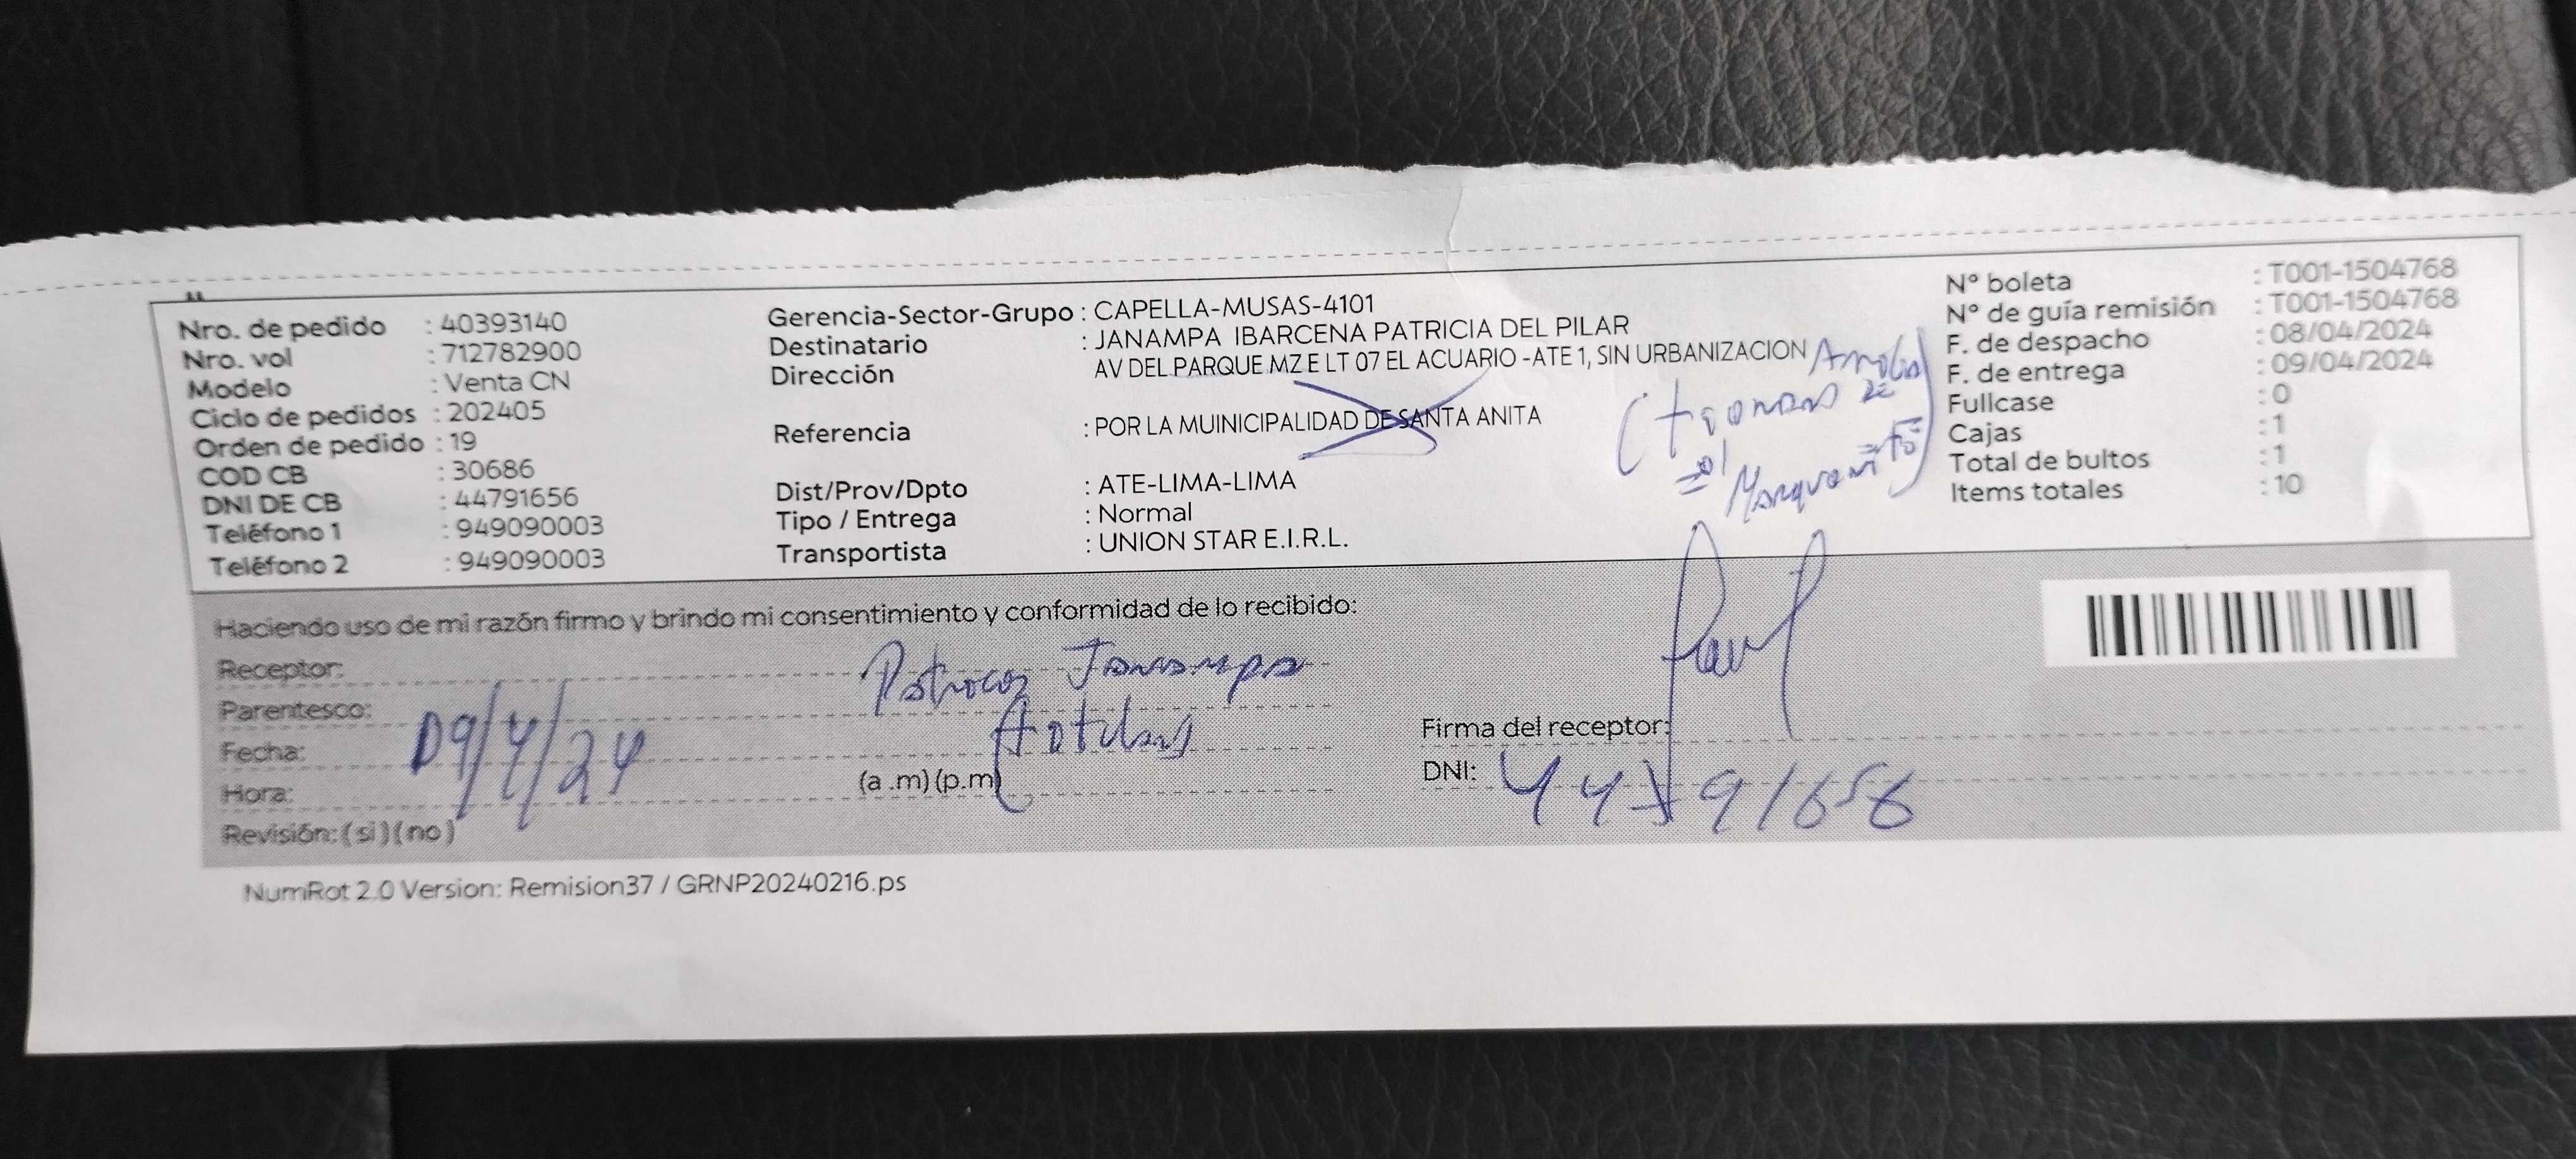 Nro. de pedido : 40393140
Nro. vol : 712782900
Modelo : Venta CN
Ciclo de pedidos : 202405
Orden de pedido : 19
COD CB : 30686
DNI DE CB : 44791656
Teléfono 1 : 949090003
Teléfono 2 : 949090003
Gerencia-Sector-Grupo : CAPELLA-MUSAS-4101
Destinatario : JANAMPA IBARCENA PATRICIA DEL PILAR
Dirección AV DEL PARQUE MZ E LT 07 EL ACUARIO -ATE 1, SIN URBANIZACION
Referencia : POR LA MUINICIPALIDAD DE SANTA ANITA
Dist/Prov/Dpto : ATE-LIMA-LIMA
Tipo / Entrega : Normal
Transportista : UNION STAR E.I.R.L.
Nº boleta : T001-1504768
Nº de guía remisión : T001-1504768
F. de despacho : 08/04/2024
F. de entrega : 09/04/2024
Fullcase : 0
Cajas : 1
Total de bultos : 1
Items totales : 10
Haciendo uso de mi razón firmo y brindo mi consentimiento y conformidad de lo recibido:
Receptor: Janampa
Parentesco:
Fecha: 09/4/24
Hora: (a .m) (p.m)
Revisión: (si) (no)
Firma del receptor:
DNI: 44791656
NumRot 2.0 Version: Remision37 / GRNP20240216.ps